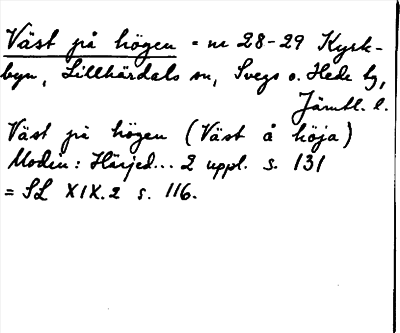 Väst på högen = nr 28-29 Kyrk-
byn, Lillhärdals sn, Svegs o. Hede tg,
Jämtl. l.
Väst på högen (Väst å höja)
Modin: Härjed... 2 uppl. s. 131
= SL XIX.2 s. 116.